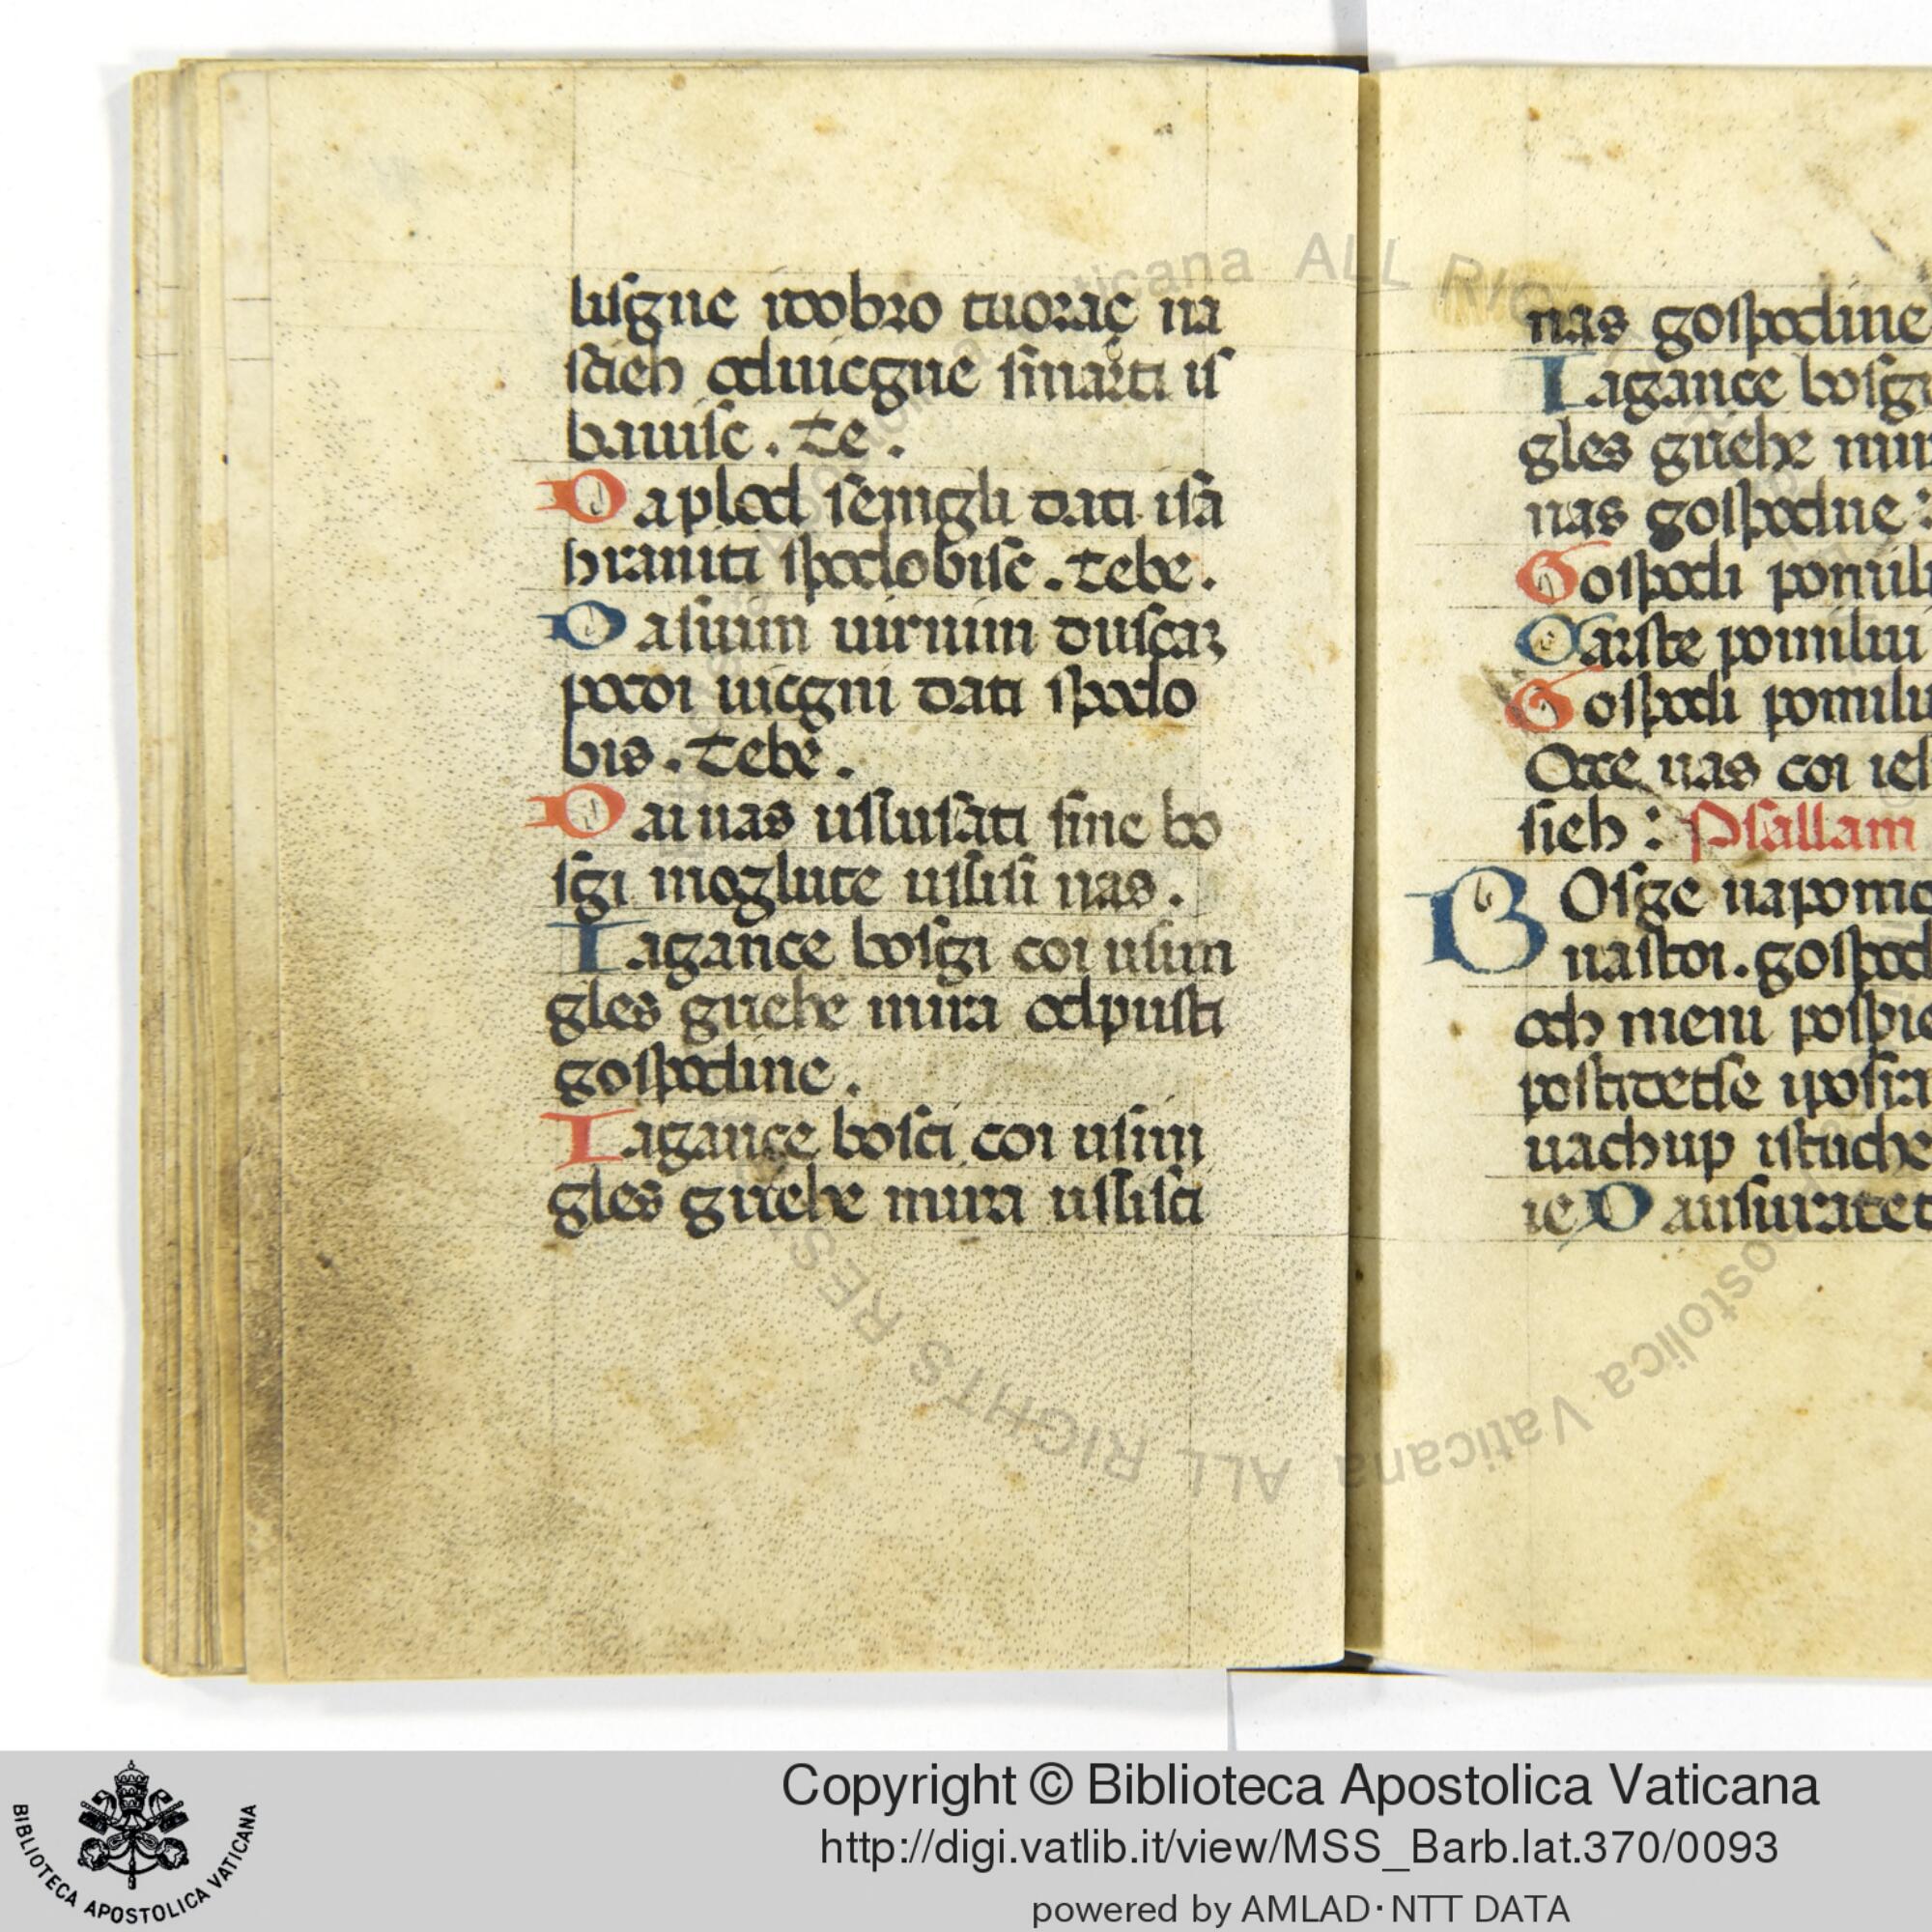 liſgne idobro tuorac na
ſcieh oduicgne ſmarti iſ
bauiſc. Te.
Da plod ſemgli dati iſa
hraniti ſpodobiſc. Tebe.
Da ſuim uirnim duſcaz
pocoi uicgni dati ſpodo
bis. Tebe.
Da i nas uſluſati ſine bo
ſgi mozlute uſliſi nas.
Iagance boſgi coi uſim
gles griehe mira odpuſti
goſpodine.
Iagance boſci coi uſim
gles griehe mira uſliſci
nas goſpodine
Iagance boſgi
gles griehe mir
nas goſpodne :
Goſpodi pomilu
Carſte pomilui
Goſpodi pomilu
Occe nas coi ieſ
ſieh : Pſallam
Boſge napomo
naſtoi. goſpod
och meni poſpie
uachup iſtuche
ie
BIBLIOTECA APOSTOLICA VATICANA
Copyright © Biblioteca Apostolica Vaticana
http://digi.vatlib.it/view/MSS_Barb.lat.370/0093
powered by AMLAD·NTT DATA